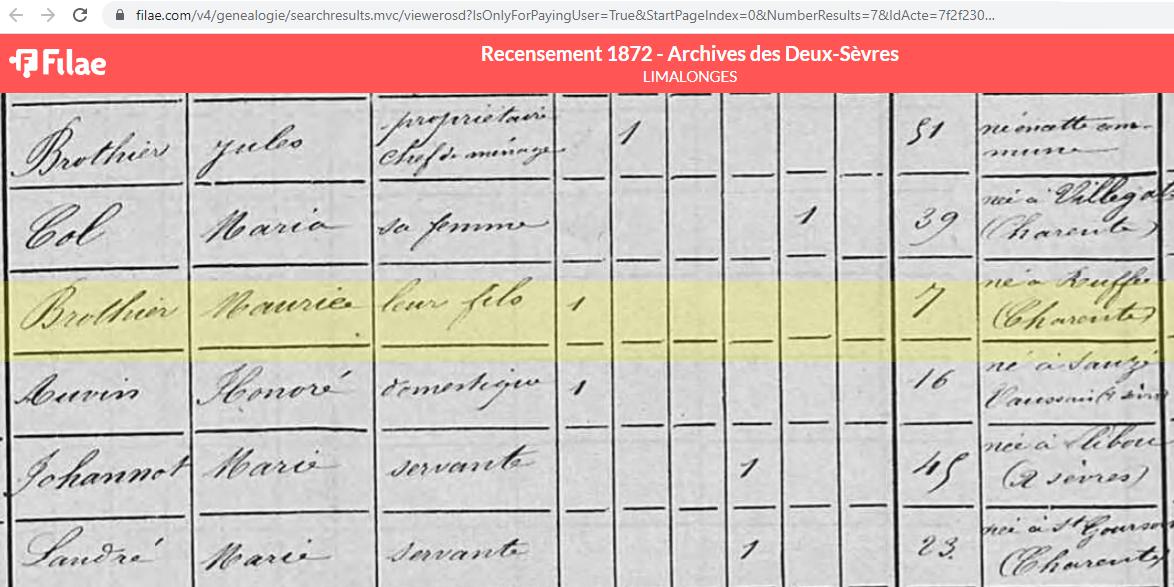 filae.com/v4/genealogie/searchresults.mvc/viewerosd?IsOnlyForPayingUser=True&StartPageIndex=0&NumberResults=7&IdActe=7f2f230...
Filae
Recensement 1872 - Archives des Deux-Sèvres
LIMALONGES
Brothier Jules propriétaire chef de ménage 1 51 né en cette commune
Col Maria sa femme 1 39 née à Villegats (Charente)
Brothier Maurice leur fils 1 7 né à Ruffec (Charente)
Auvin Honoré domestique 1 16 né à Sauzé
Johannot Marie servante 1 45 née à (2 sèvres)
Landré Marie servante 1 23 née à St Gourson (Charente)